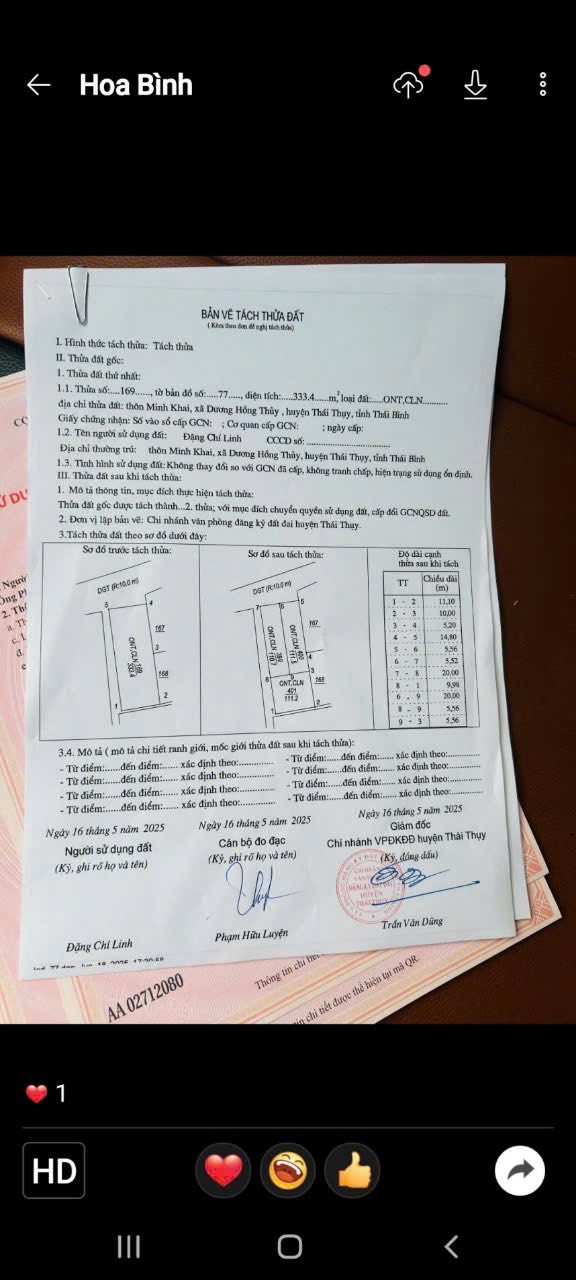 Hoa Bình
BẢN VẼ TÁCH THỬA ĐẤT
( Kèm theo đơn đề nghị tách thửa)
I. Hình thức tách thửa: Tách thửa
II. Thửa đất gốc:
1. Thửa đất thứ nhất:
1.1. Thửa số:....169...., tờ bản đồ số:....77...., diện tích:.....333.4.....m², loại đất:....ONT,CLN.........
địa chỉ thửa đất: thôn Minh Khai, xã Dương Hồng Thủy , huyện Thái Thụy, tỉnh Thái Bình
Giấy chứng nhận: Số vào sổ cấp GCN: ; Cơ quan cấp GCN: ; ngày cấp:
1.2. Tên người sử dụng đất: Đặng Chí Linh CCCD số: ..........................
Địa chỉ thường trú: thôn Minh Khai, xã Dương Hồng Thủy, huyện Thái Thụy, tỉnh Thái Bình
1.3. Tình hình sử dụng đất: Không thay đổi so với GCN đã cấp, không tranh chấp, hiện trạng sử dụng ổn định.
III. Thửa đất sau khi tách thửa:
1. Mô tả thông tin, mục đích thực hiện tách thửa:
Thửa đất gốc được tách thành...2. thửa; với mục đích chuyển quyền sử dụng đất, cấp đổi GCNQSD đất.
2. Đơn vị lập bản vẽ: Chi nhánh văn phòng đăng ký đất đai huyện Thái Thụy.
3.Tách thửa đất theo sơ đồ dưới đây:
Sơ đồ trước tách thửa:
DGT (R:10.0 m)
5 4
167
ONT,CLN 169
333.4
3
168
1 2
Sơ đồ sau tách thửa:
DGT (R:10.0 m)
7 6 5
167
4
8 9 3
168
ONT,CLN
401
111.2
1 2
Độ dài cạnh
thửa sau khi tách
TT Chiều dài
(m)
1 - 2 11,10
2 - 3 10,00
3 - 4 5,20
4 - 5 14,80
5 - 6 5,56
6 - 7 5,52
7 - 8 20,00
8 - 1 9,98
6 - 9 20,00
8 - 9 5,56
9 - 3 5,56
3.4. Mô tả ( mô tả chi tiết ranh giới, mốc giới thửa đất sau khi tách thửa):
- Từ điểm:......đến điểm:...... xác định theo:............ - Từ điểm:......đến điểm:...... xác định theo:............
- Từ điểm:......đến điểm:...... xác định theo:............ - Từ điểm:......đến điểm:...... xác định theo:............
- Từ điểm:......đến điểm:...... xác định theo:............ - Từ điểm:......đến điểm:...... xác định theo:............
- Từ điểm:......đến điểm:...... xác định theo:............ - Từ điểm:......đến điểm:...... xác định theo:............
Ngày 16 tháng 5 năm 2025 Ngày 16 tháng 5 năm 2025 Ngày 16 tháng 5 năm 2025
Người sử dụng đất Cán bộ đo đạc Giám đốc
(Ký, ghi rõ họ và tên) (Ký, ghi rõ họ và tên) Chi nhánh VPĐKĐĐ huyện Thái Thụy
(Ký, đóng dấu)
CHI NHÁNH
VĂN PHÒNG
ĐĂNG KÝ ĐẤT ĐAI
HUYỆN
THÁI THỤY
Đặng Chí Linh Phạm Hữu Luyện Trần Văn Dũng
AA 02712080
Thông tin chi tiết
tin chi tiết được thể hiện tại mã QR.
1
HD